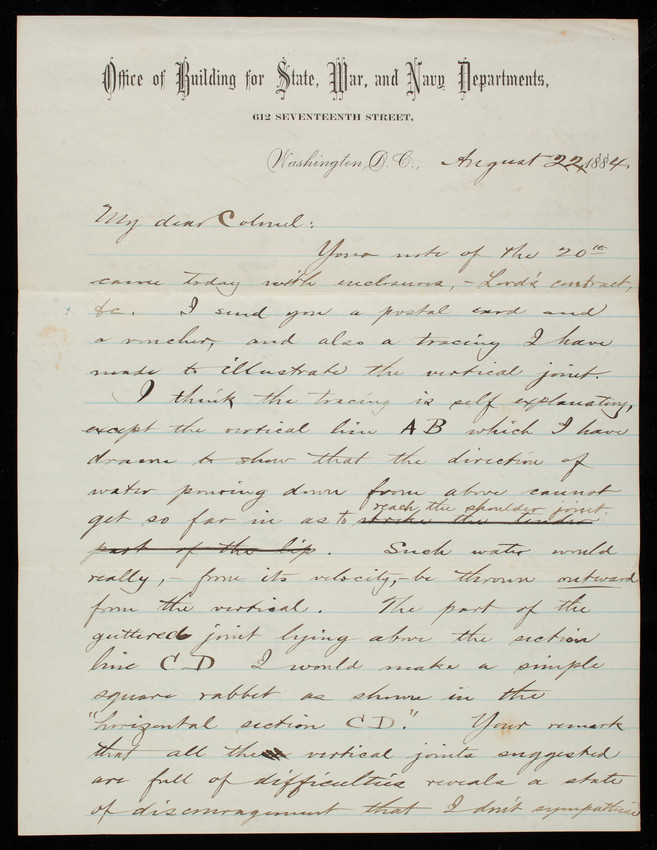 Office of Building for State, War, and Navy Departments,
612 SEVENTEENTH STREET,
Washington, D.C., August 22, 1884.
My dear Colonel:
Your note of the 20th
came today with enclosures, - Lord's contract,
&c. I send you a postal card and
a voucher, and also a tracing I have
made to illustrate the vertical joint.
I think the tracing is self explanatory,
except the vertical line AB which I have
drawn to show that the direction of
water pouring down from above cannot
reach the shoulder joint
get so far in as to strike the under
part of the lip. Such water would
really, - from its velocity, - be thrown outward
from the vertical. The part of the
guttered joint lying above the section
line CD I would make a simple
square rabbet as shown in the
"horizontal section CD." Your remark
that all the vertical joints suggested
are full of difficulties reveals a state
of discouragement that I don't sympathise